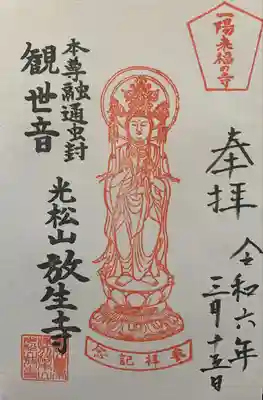 一陽来福の寺
奉拝
令和六年
三月十五日
本尊融通虫封
観世音
光松山放生寺
奉拝記念